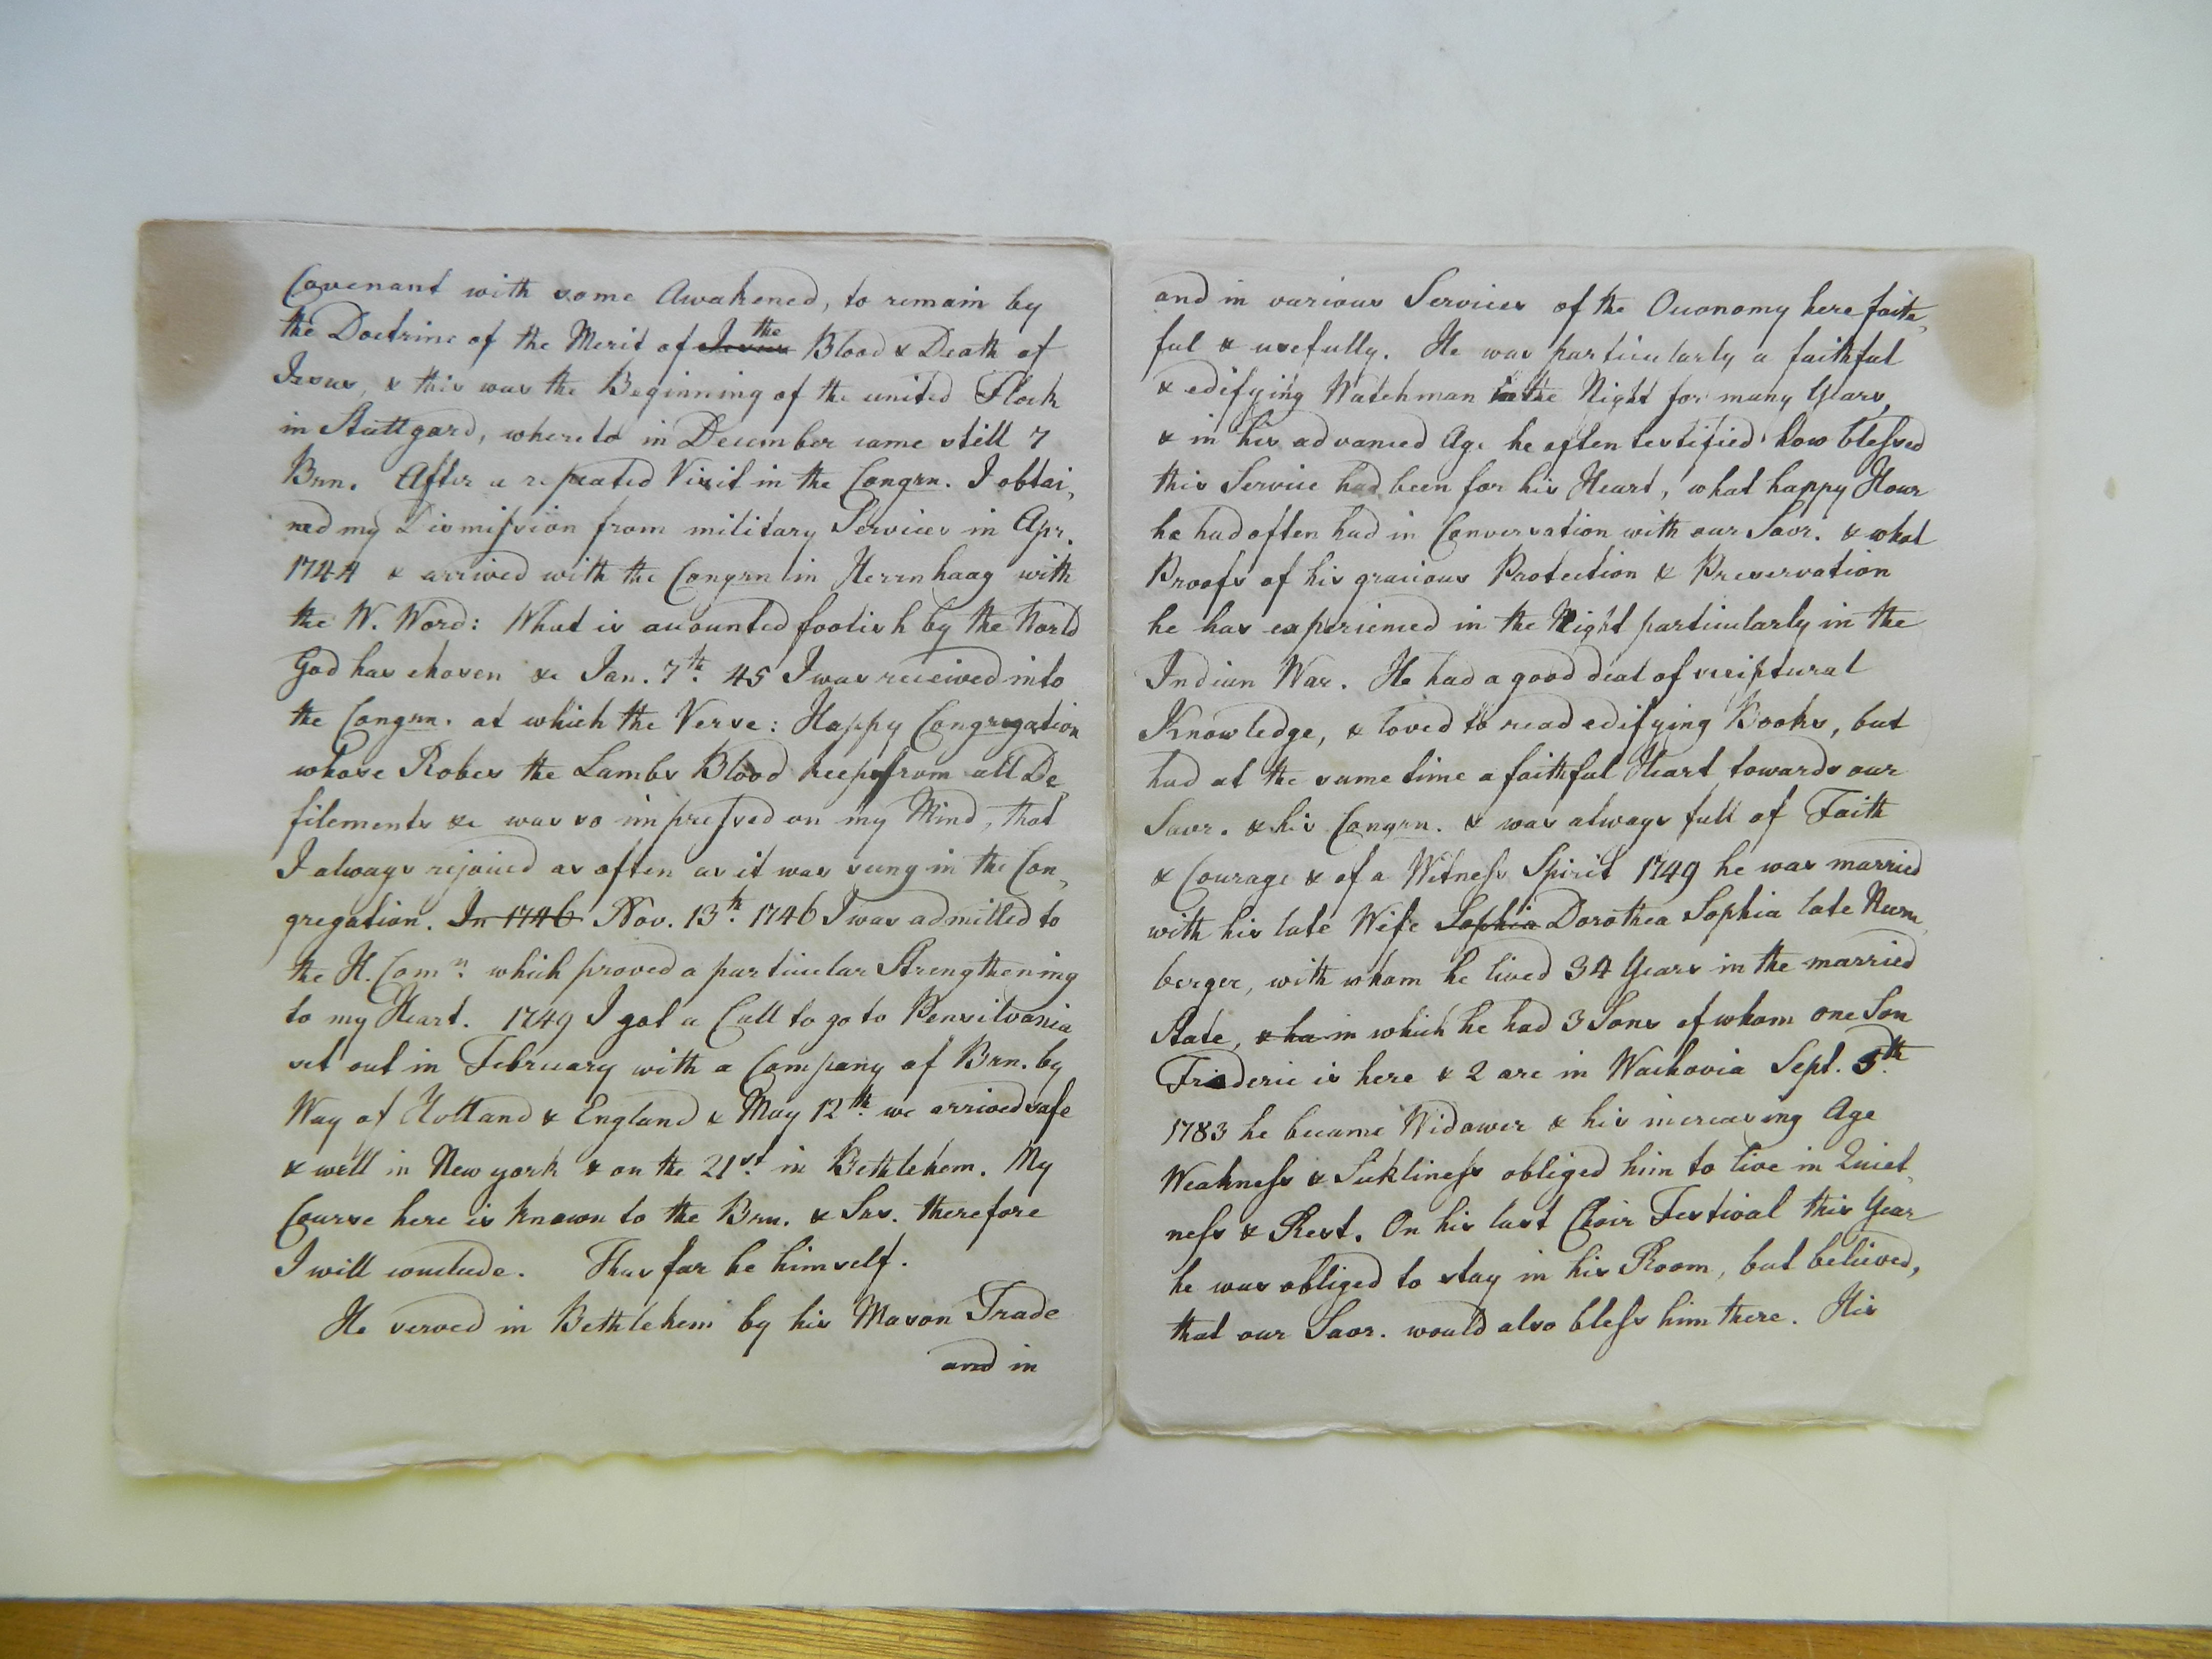 Covenant with some Awakened, to remain by
the Doctrine of the Merit of Jesus the Blood & Death of
Jesus, & this was the Beginning of the united Flock
in Stuttgard, whereto in December came still 7
Brn. After a repeated Visit in the Congrn. I obtai,
ned my Dismission from military Services in Apr.
1744 & arrived with the Congrn in Herrnhaag with
the W. Word: What is accounted foolish by the World
God has chosen &c Jan. 7th. 45 I was received into
the Congrn. at which the Verse: Happy Congregation
whose Robes the Lambs Blood keeps from all De,
filements &c was so impressed on my Mind, that
I always rejoiced as often as it was sung in the Con,
gregation. In 1746 Nov. 13th. 1746 I was admitted to
the H. Comn. which proved a particular Strengthening
to my Heart. 1749 I got a Call to go to Pensilvania
set out in February with a Company of Brn. by
Way of Holland & England & May 12th. we arrived safe
& well in New york & on the 21st. in Bethlehem. My
Course here is known to the Brn. & Srs. therefore
I will conclude. Thus far he himself.
He served in Bethlehem by his Mason Trade
and in
and in various Services of the Oeconomy here faith,
ful & usefully. He was particularly a faithful
& edifying Watchman in the Night for many Years,
& in his advanced Age he often testified how blessed
this Service had been for his Heart, what happy Hour
he had often had in Conversation with our Savr. & what
Proofs of his gracious Protection & Preservation
he has experienced in the Night particularly in the
Indian War. He had a good deal of scriptural
Knowledge, & loved to read edifying Books, but
had at the same time a faithful Heart towards our
Savr. & his Congrn. & was always full of Faith
& Courage & of a Witness Spirit 1749 he was married
with his late Wife Sophia Dorothea Sophia late Nurn,
berger, with whom he lived 34 Years in the married
State, & ha in which he had 3 Sons of whom one Son
Frideric is here & 2 are in Wachovia Sept. 5th.
1783 he became Widower & his increasing Age
Weakness & Sickliness obliged him to live in Quiet,
ness & Rest. On his last Choir Festival this Year
he was obliged to stay in his Room, but believed,
that our Savr. would also bless him there. His